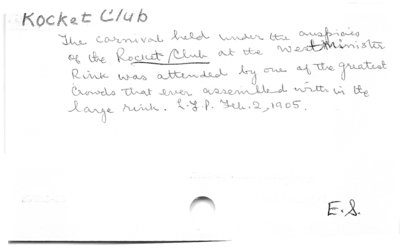 Rocket Club
The carnival held under the auspicies
of the Rocket Club at the Westminister
Rink was attended by one of the greatest
Crowds that ever assembled with in the
large rink. L.F.P. Feb. 2, 1905.
E.S.